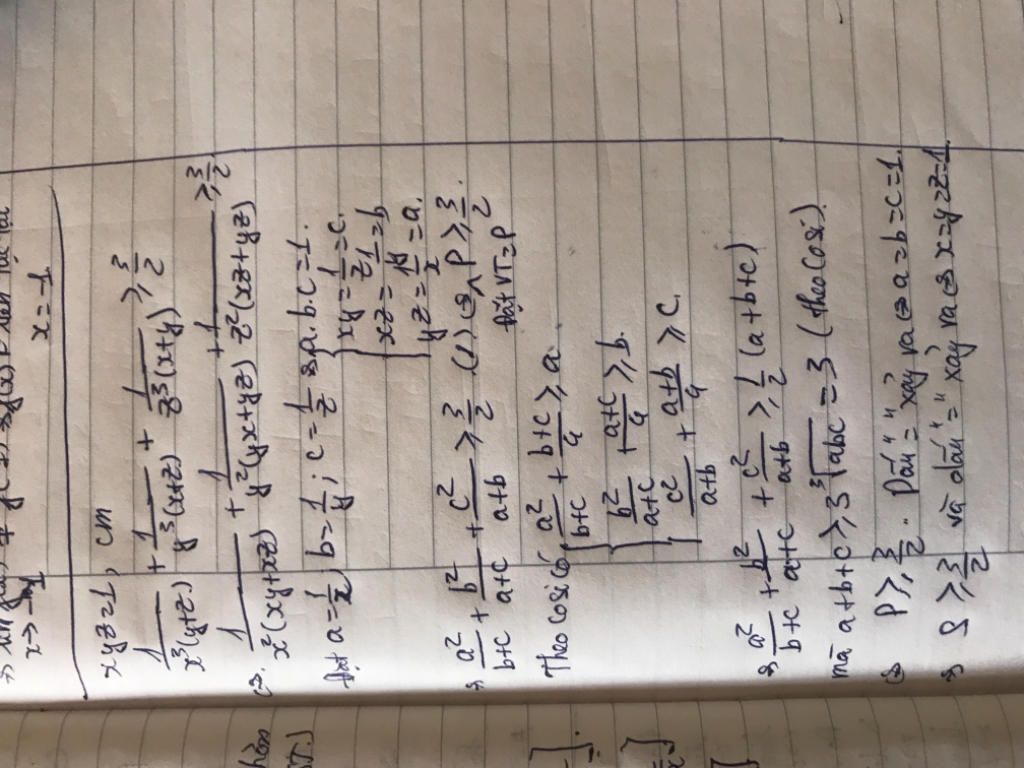 x → -1
x = -1
xyz = 1, cm
1/x³(y+z) + 1/y³(x+z) + 1/z³(x+y) ≥ 3/2
<=> 1/x²(xy+xz) + 1/y²(yx+yz) + 1/z²(xz+yz) ≥ 3/2
Đặt a = 1/x, b = 1/y; c = 1/z => { a.b.c = 1.
xy = 1/z = c.
xz = 1/y = b
yz = 1/x = a.
=> a²/b+c + b²/a+c + c²/a+b ≥ 3/2 (1) <=> P ≥ 3/2.
Đặt VT = P
Theo cosi có { a²/b+c + b+c/4 ≥ a
b²/a+c + a+c/4 ≥ b.
c²/a+b + a+b/4 ≥ c.
=> a²/b+c + b²/a+c + c²/a+b ≥ 1/2 (a+b+c)
mà a+b+c ≥ 3 ³√abc = 3 (theo cosi).
<=> P ≥ 3/2. Dấu "=" xảy ra <=> a=b=c=1.
=> S ≥ 3/2 và dấu "=" xảy ra <=> x=y=z=1.